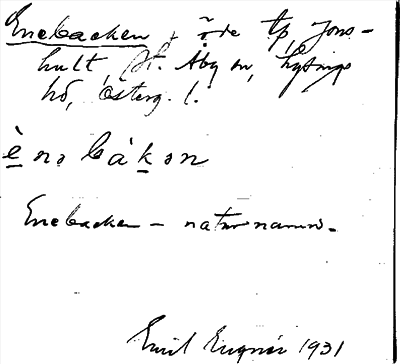 Enebacken, öde tp, Jons-
hult, St. Åby sn, Lysings
hd, Österg. l.
è̱nə bàḵən
Enebacken – naturnamn.
Emil 1931